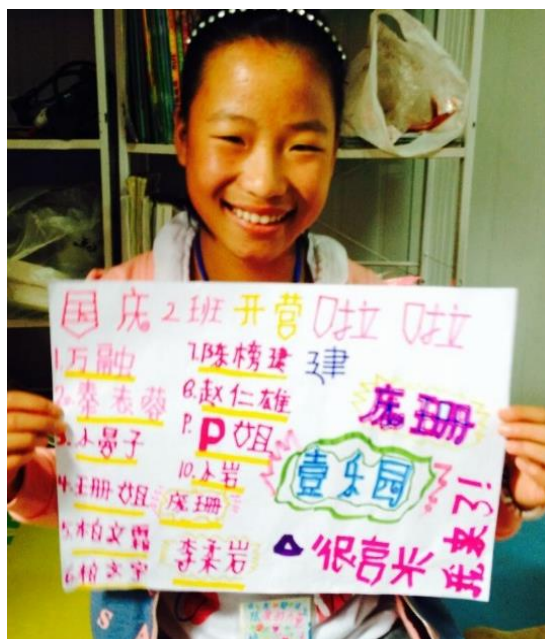 国庆2班开营啦啦
1.万融
2.秦表蓉
3.小鼻子
4.王册姐
5.柏文霜
6.柏文宇
7.陈榜建 建
8.赵仁雄
9.P姐
10.小岩
庞珊
李柔岩
庞珊
壹乐园
很高兴
我来了!